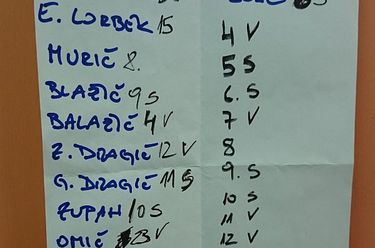 E. LORBEK 15
MURIĆ 8.
4 V
BLAŽIČ 9 S
5 S
BALAŽIČ 4 V
6. S
Z. DRAGIČ 12 V
7 V
G. DRAGIČ 11 S
8
ZUPAN 10 S
9. S
OMIČ 13 V
10 S
11 V
12 V